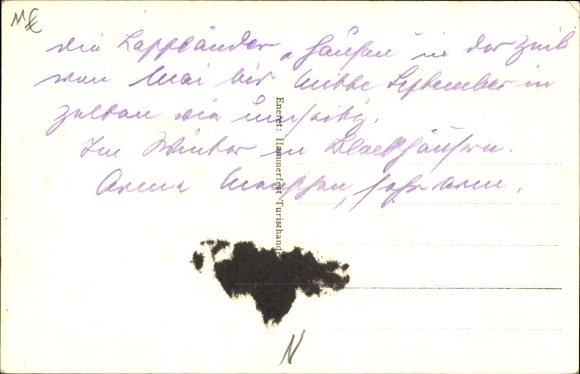 die Lappländer „hausen" in der Zeit
von Mai bis Mitte September in
Zelten wie umseitig.
Im Winter in Blockhäusern.
Arme Menschen, sehr arm.
Eneret: Hammerfest Turisthand
N